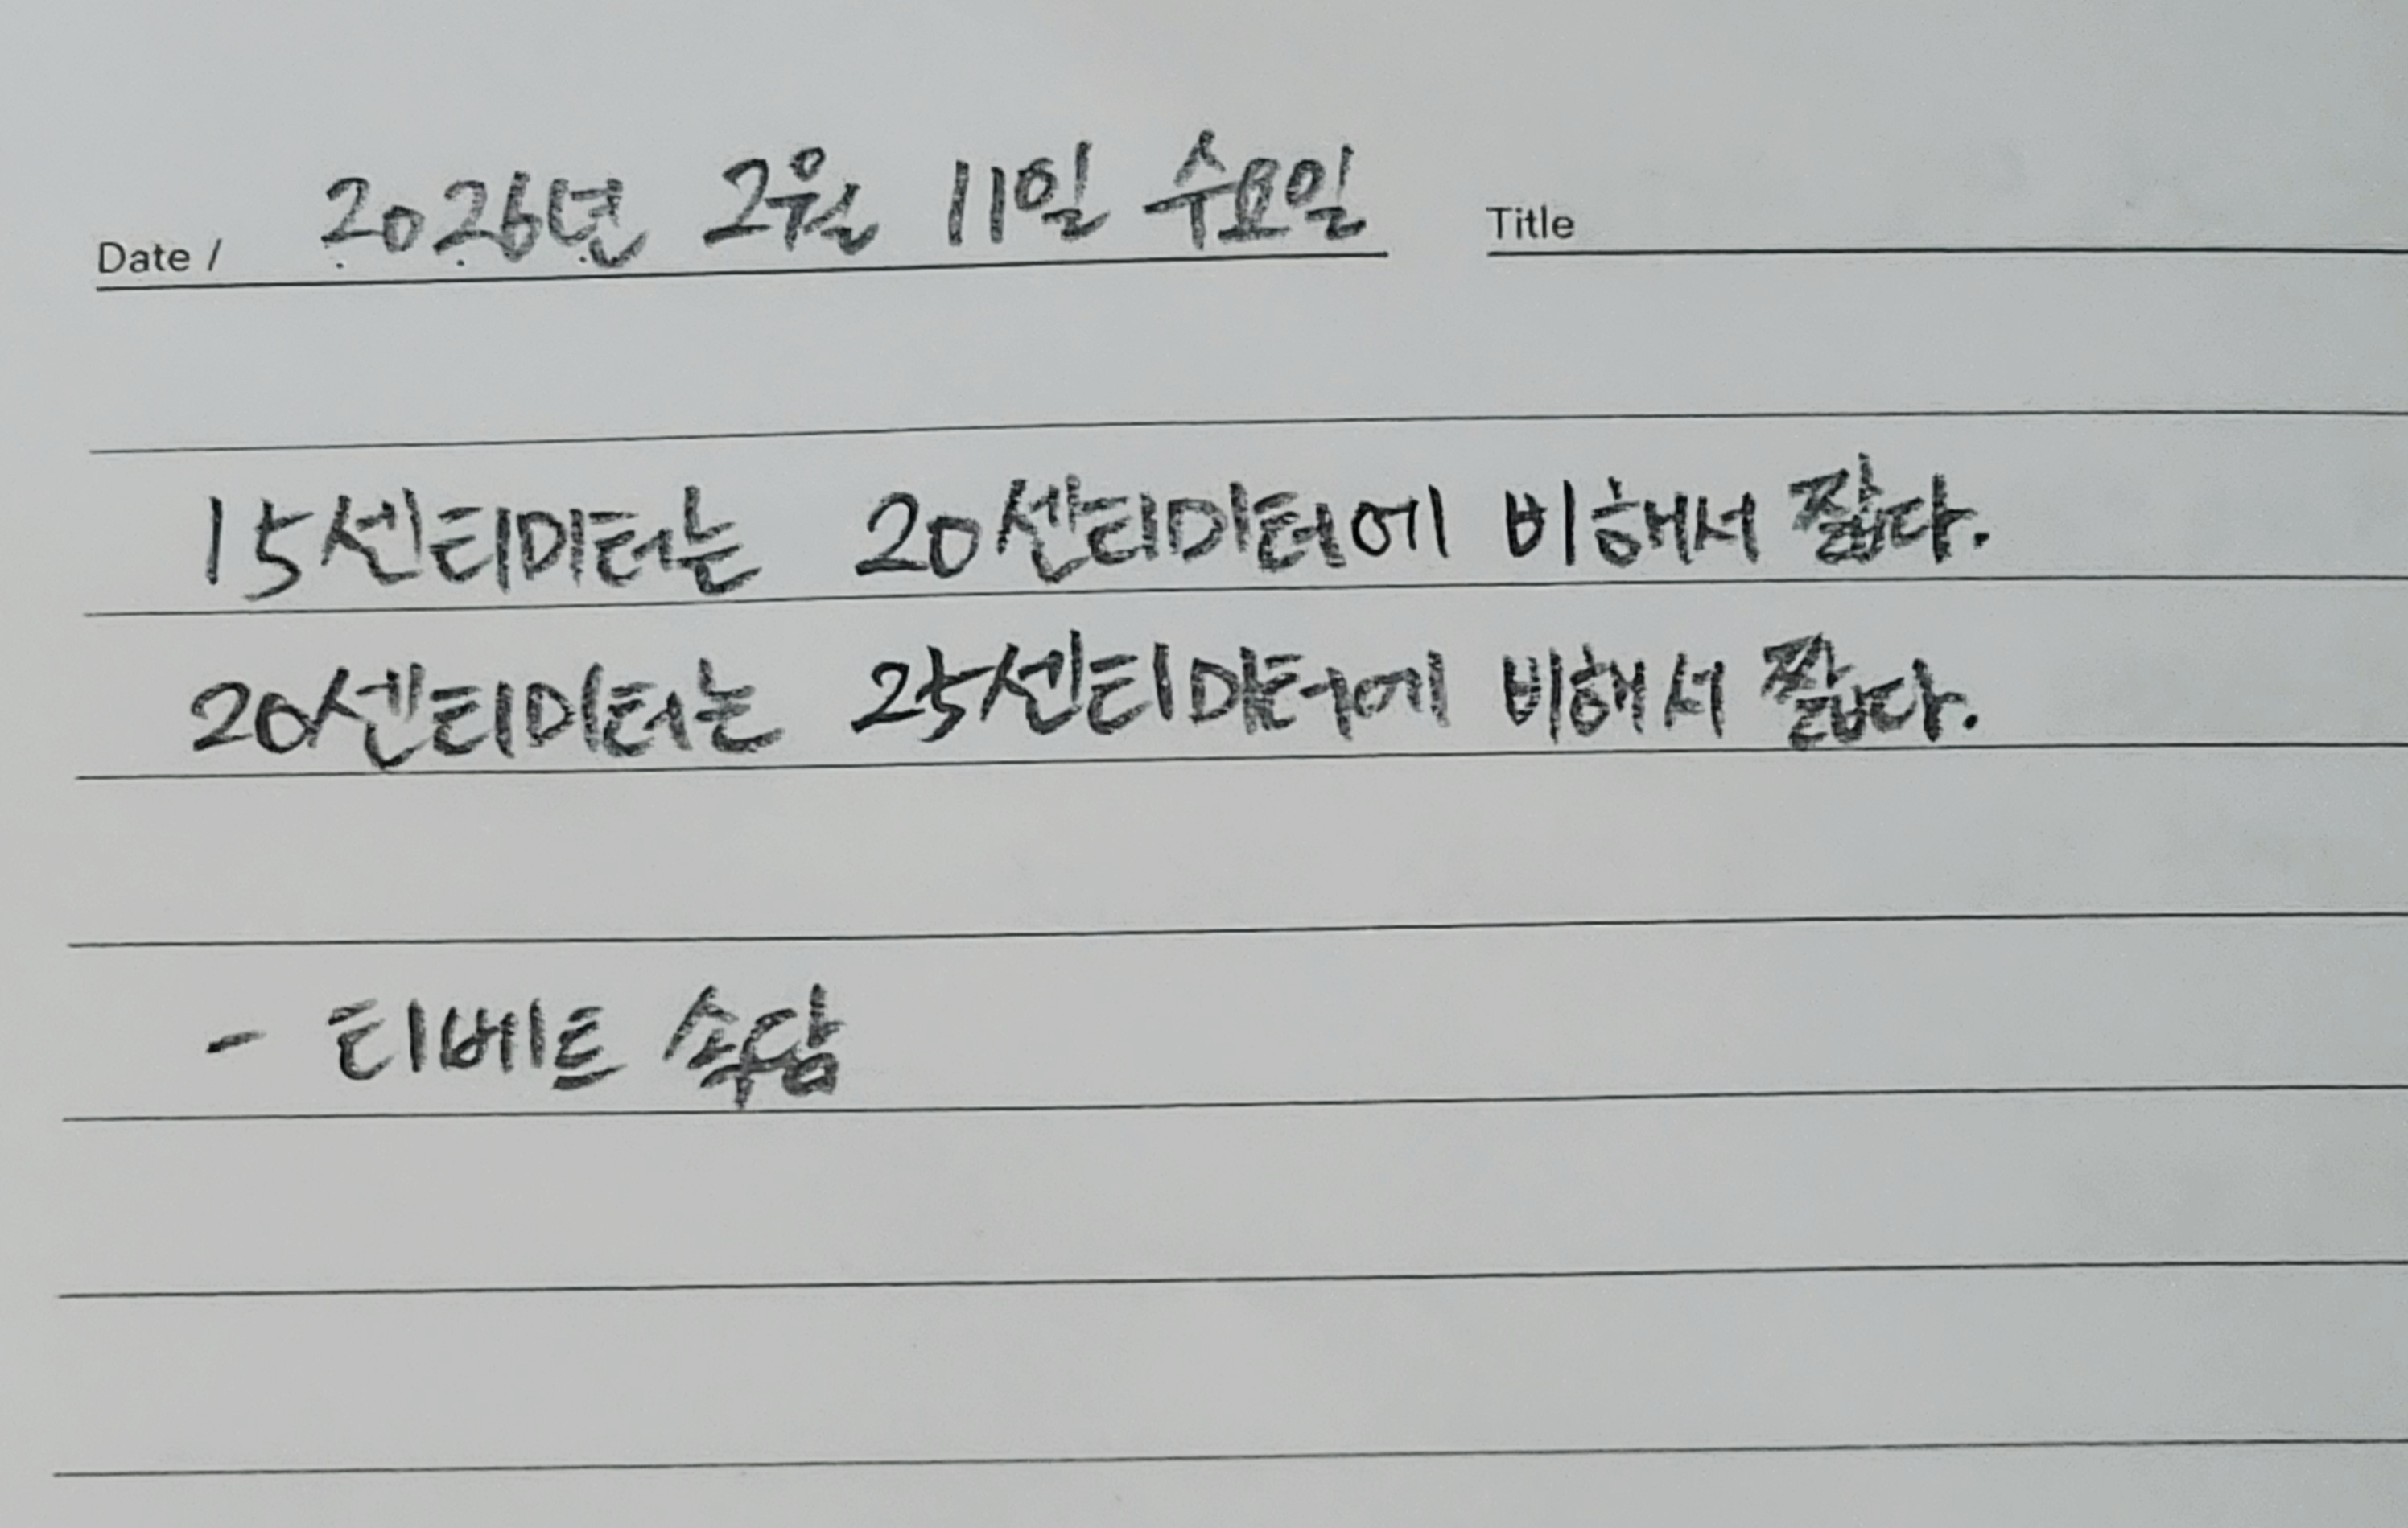 Date / 2026년 2월 11일 수요일 Title
15센티미터는 20센티미터에 비해서 짧다.
20센티미터는 25센티미터에 비해서 짧다.
- 티베트 속담